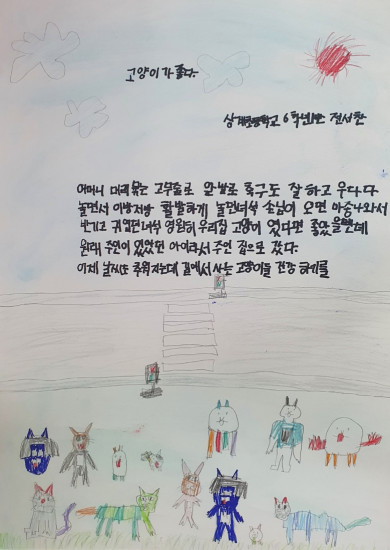 고양이가 좋다.
상계초등학교 6학년1반 전서찬
어머니 머리 묶는 고무줄로 앞발로 축구도 잘 하고 우다다
놀면서 이방저방 활발하게 놀던녀석 손님이 오면 마중나와서
반기고 귀엽던녀석 영원히 우리집 고양이 였다면 좋았을텐데
원래 주인이 있었던 아이라서 주인 집으로 갔다.
이제 날씨도 추워지는데 길에서 사는 고양이들 건강 하기를